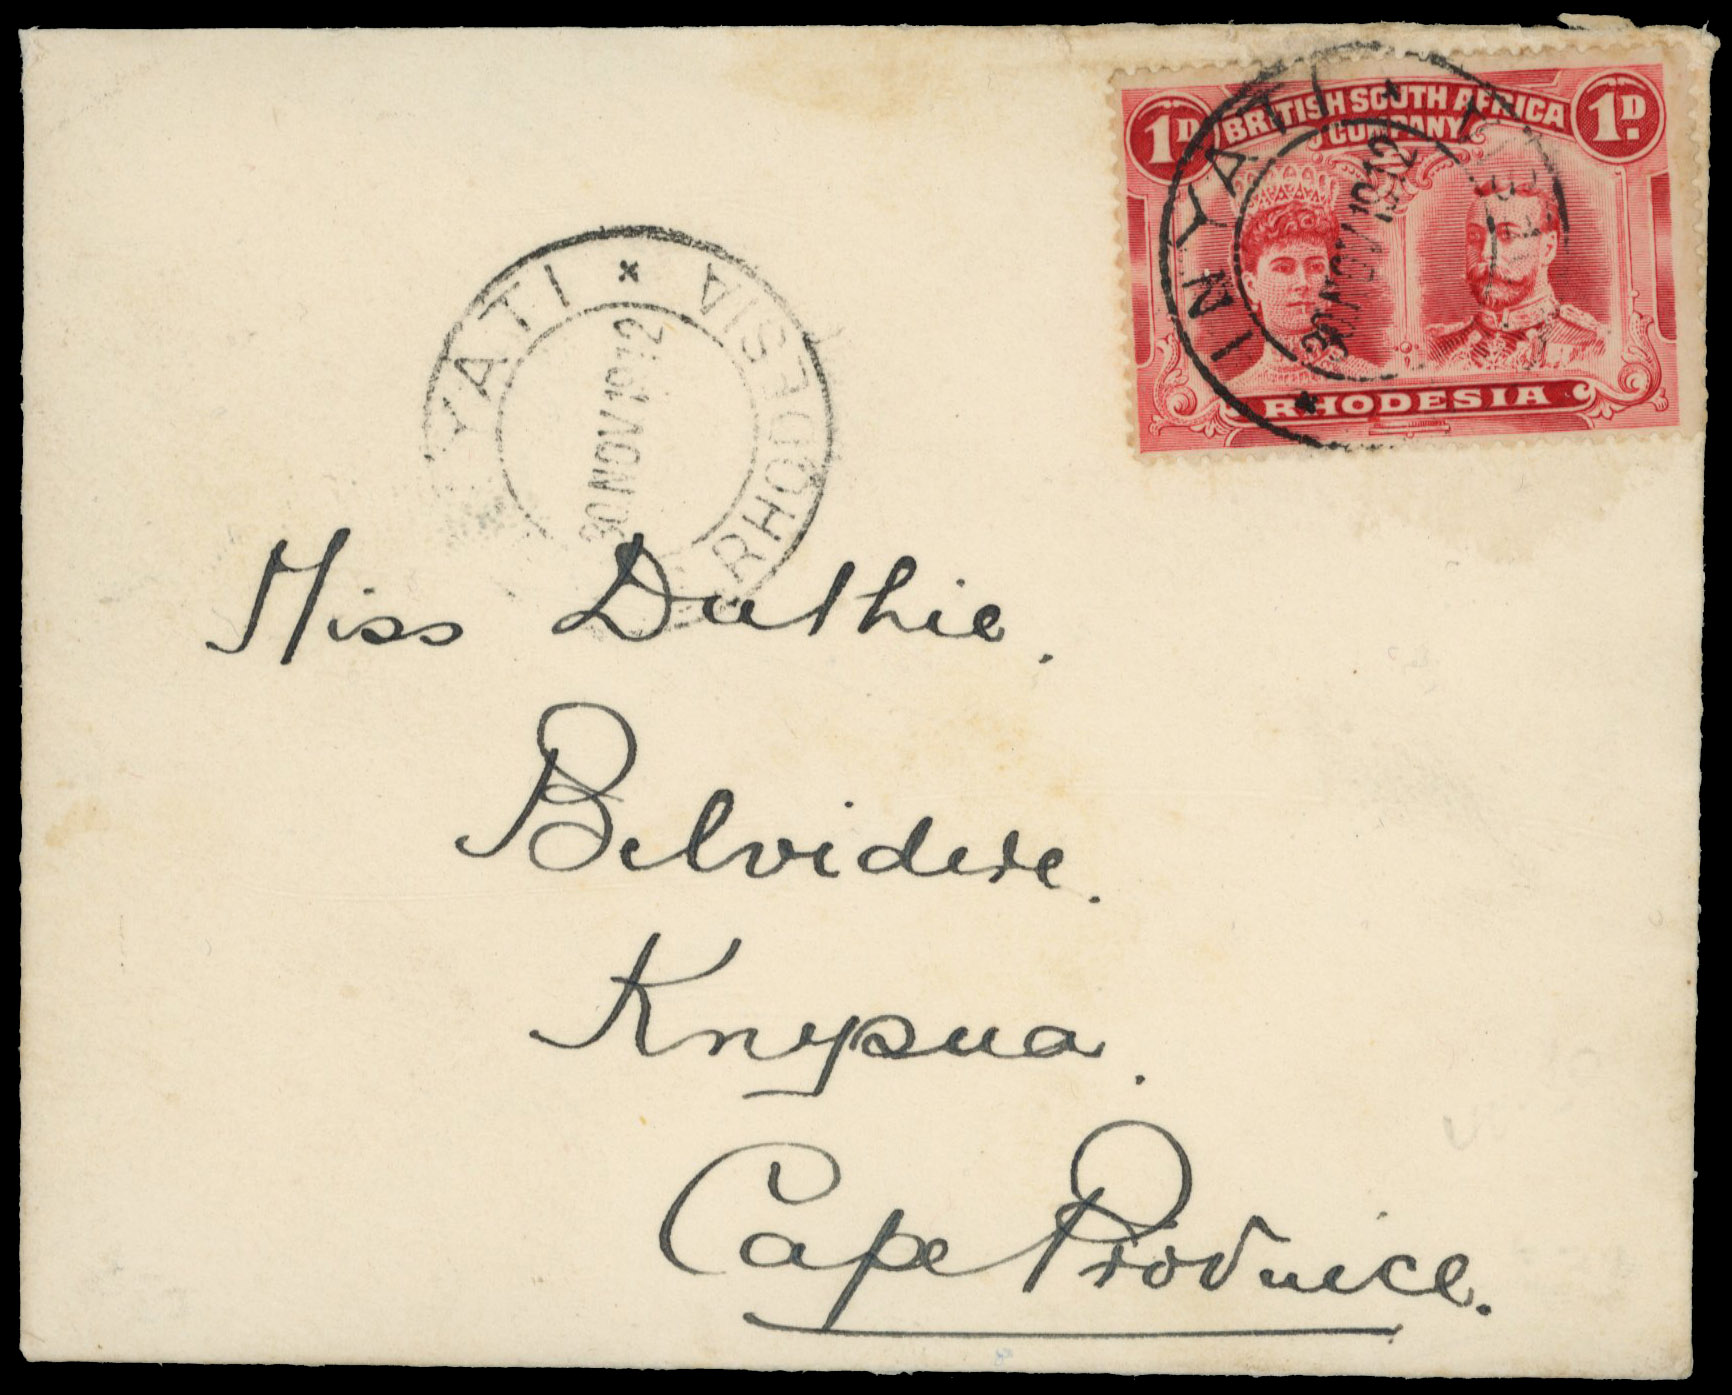 1D BRITISH SOUTH AFRICA 1D.
COMPANY
RHODESIA
INYATI
30 NOV 1912
YATI × RHODESIA
30 NOV 1912
Miss Duthie.
Belvidere.
Knysna.
Cape Province.